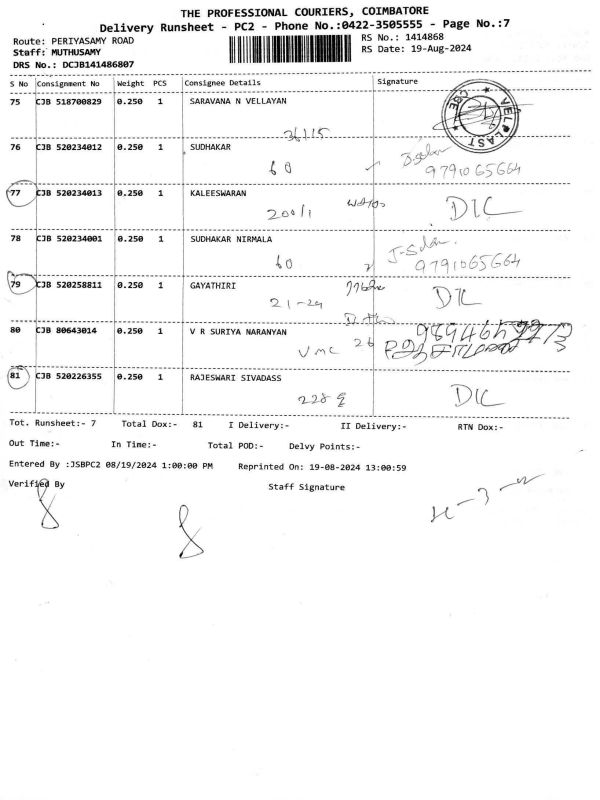 THE PROFESSIONAL COURIERS, COIMBATORE
Delivery Runsheet - PC2 - Phone No.:0422-3505555 - Page No.:7
Route: PERIYASAMY ROAD RS No.: 1414868
Staff: MUTHUSAMY RS Date: 19-Aug-2024
DRS No.: DCJB141486807
S No Consignment No Weight PCS Consignee Details Signature
75 CJB 518700829 0.250 1 SARAVANA N VELLAYAN
VELPLAST CBE
36115
76 CJB 520234012 0.250 1 SUDHAKAR
60 9791065664
77 CJB 520234013 0.250 1 KALEESWARAN
200/1 DIC
78 CJB 520234001 0.250 1 SUDHAKAR NIRMALA
60 9791065664
79 CJB 520258811 0.250 1 GAYATHIRI
21-24 DIL
80 CJB 80643014 0.250 1 V R SURIYA NARANYAN
VMC 26
81 CJB 520226355 0.250 1 RAJESWARI SIVADASS
228 DIC
Tot. Runsheet:- 7 Total Dox:- 81 I Delivery:- II Delivery:- RTN Dox:-
Out Time:- In Time:- Total POD:- Delvy Points:-
Entered By :JSBPC2 08/19/2024 1:00:00 PM Reprinted On: 19-08-2024 13:00:59
Verified By Staff Signature